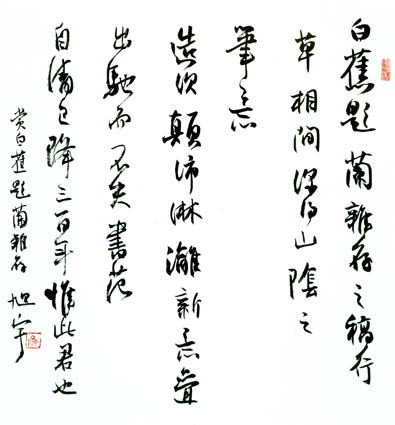 白蕉題蘭雜存之稿行
草相間深得山陰之
筆意
造次顛沛淋灕新意疊
出馳而不失書范
自清已降三百年惟此君也
賞白蕉題蘭雜存 旭宇